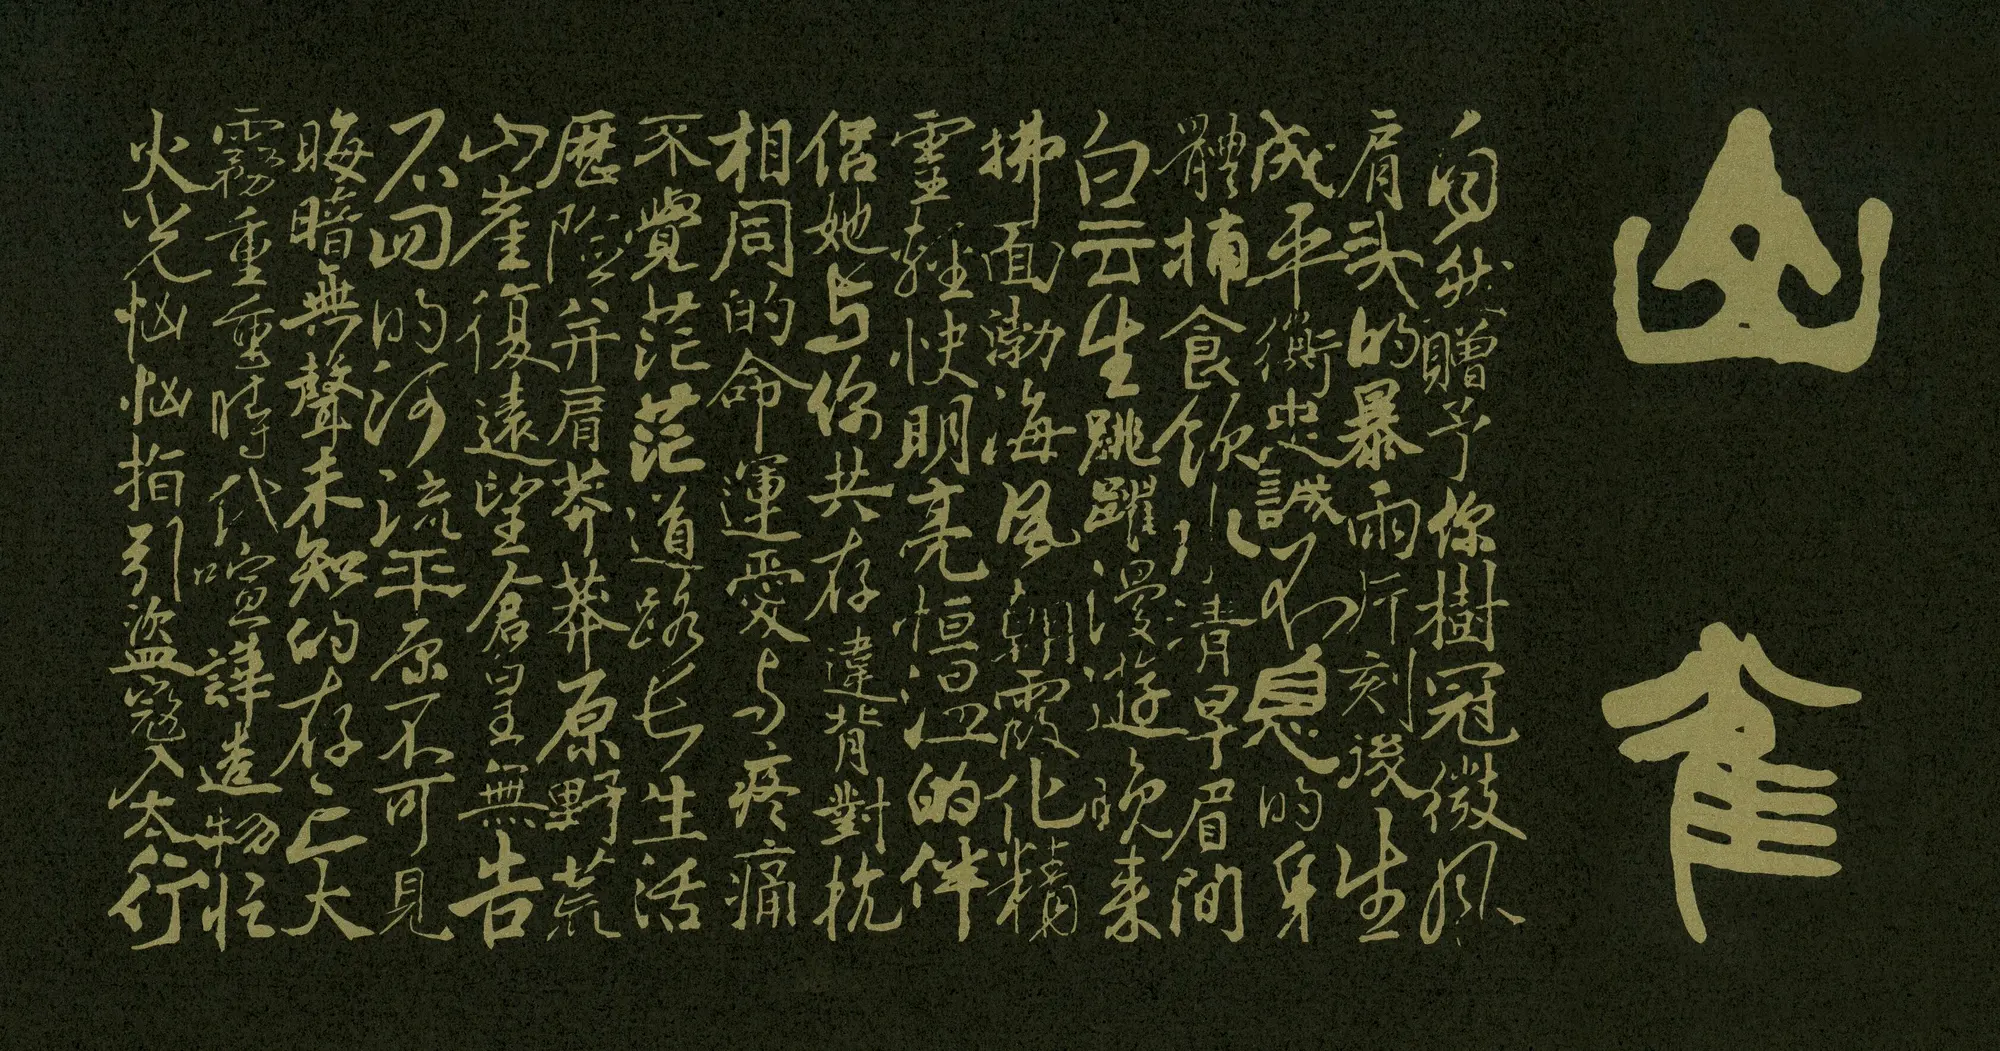 山雀
自然赠予你树冠微风
肩头的暴雨片刻後生
成平衡忠誠不息的身
體捕食飲水清早眉間
白云生跳躍漫遊晚来
拂面渤海风朝霞化精
靈輕快明亮恒温的伴
侣她与你共存違背對抗
相同的命運愛与疼痛
不覺茫茫道路长生活
歷险并肩莽莽原野荒
山崖復遠望倉皇無告
不回的河流平原不可見
晦暗無聲未知的存亡大
霧重重時代喧譁造物忙
火光忷忷指引盜寇入太行